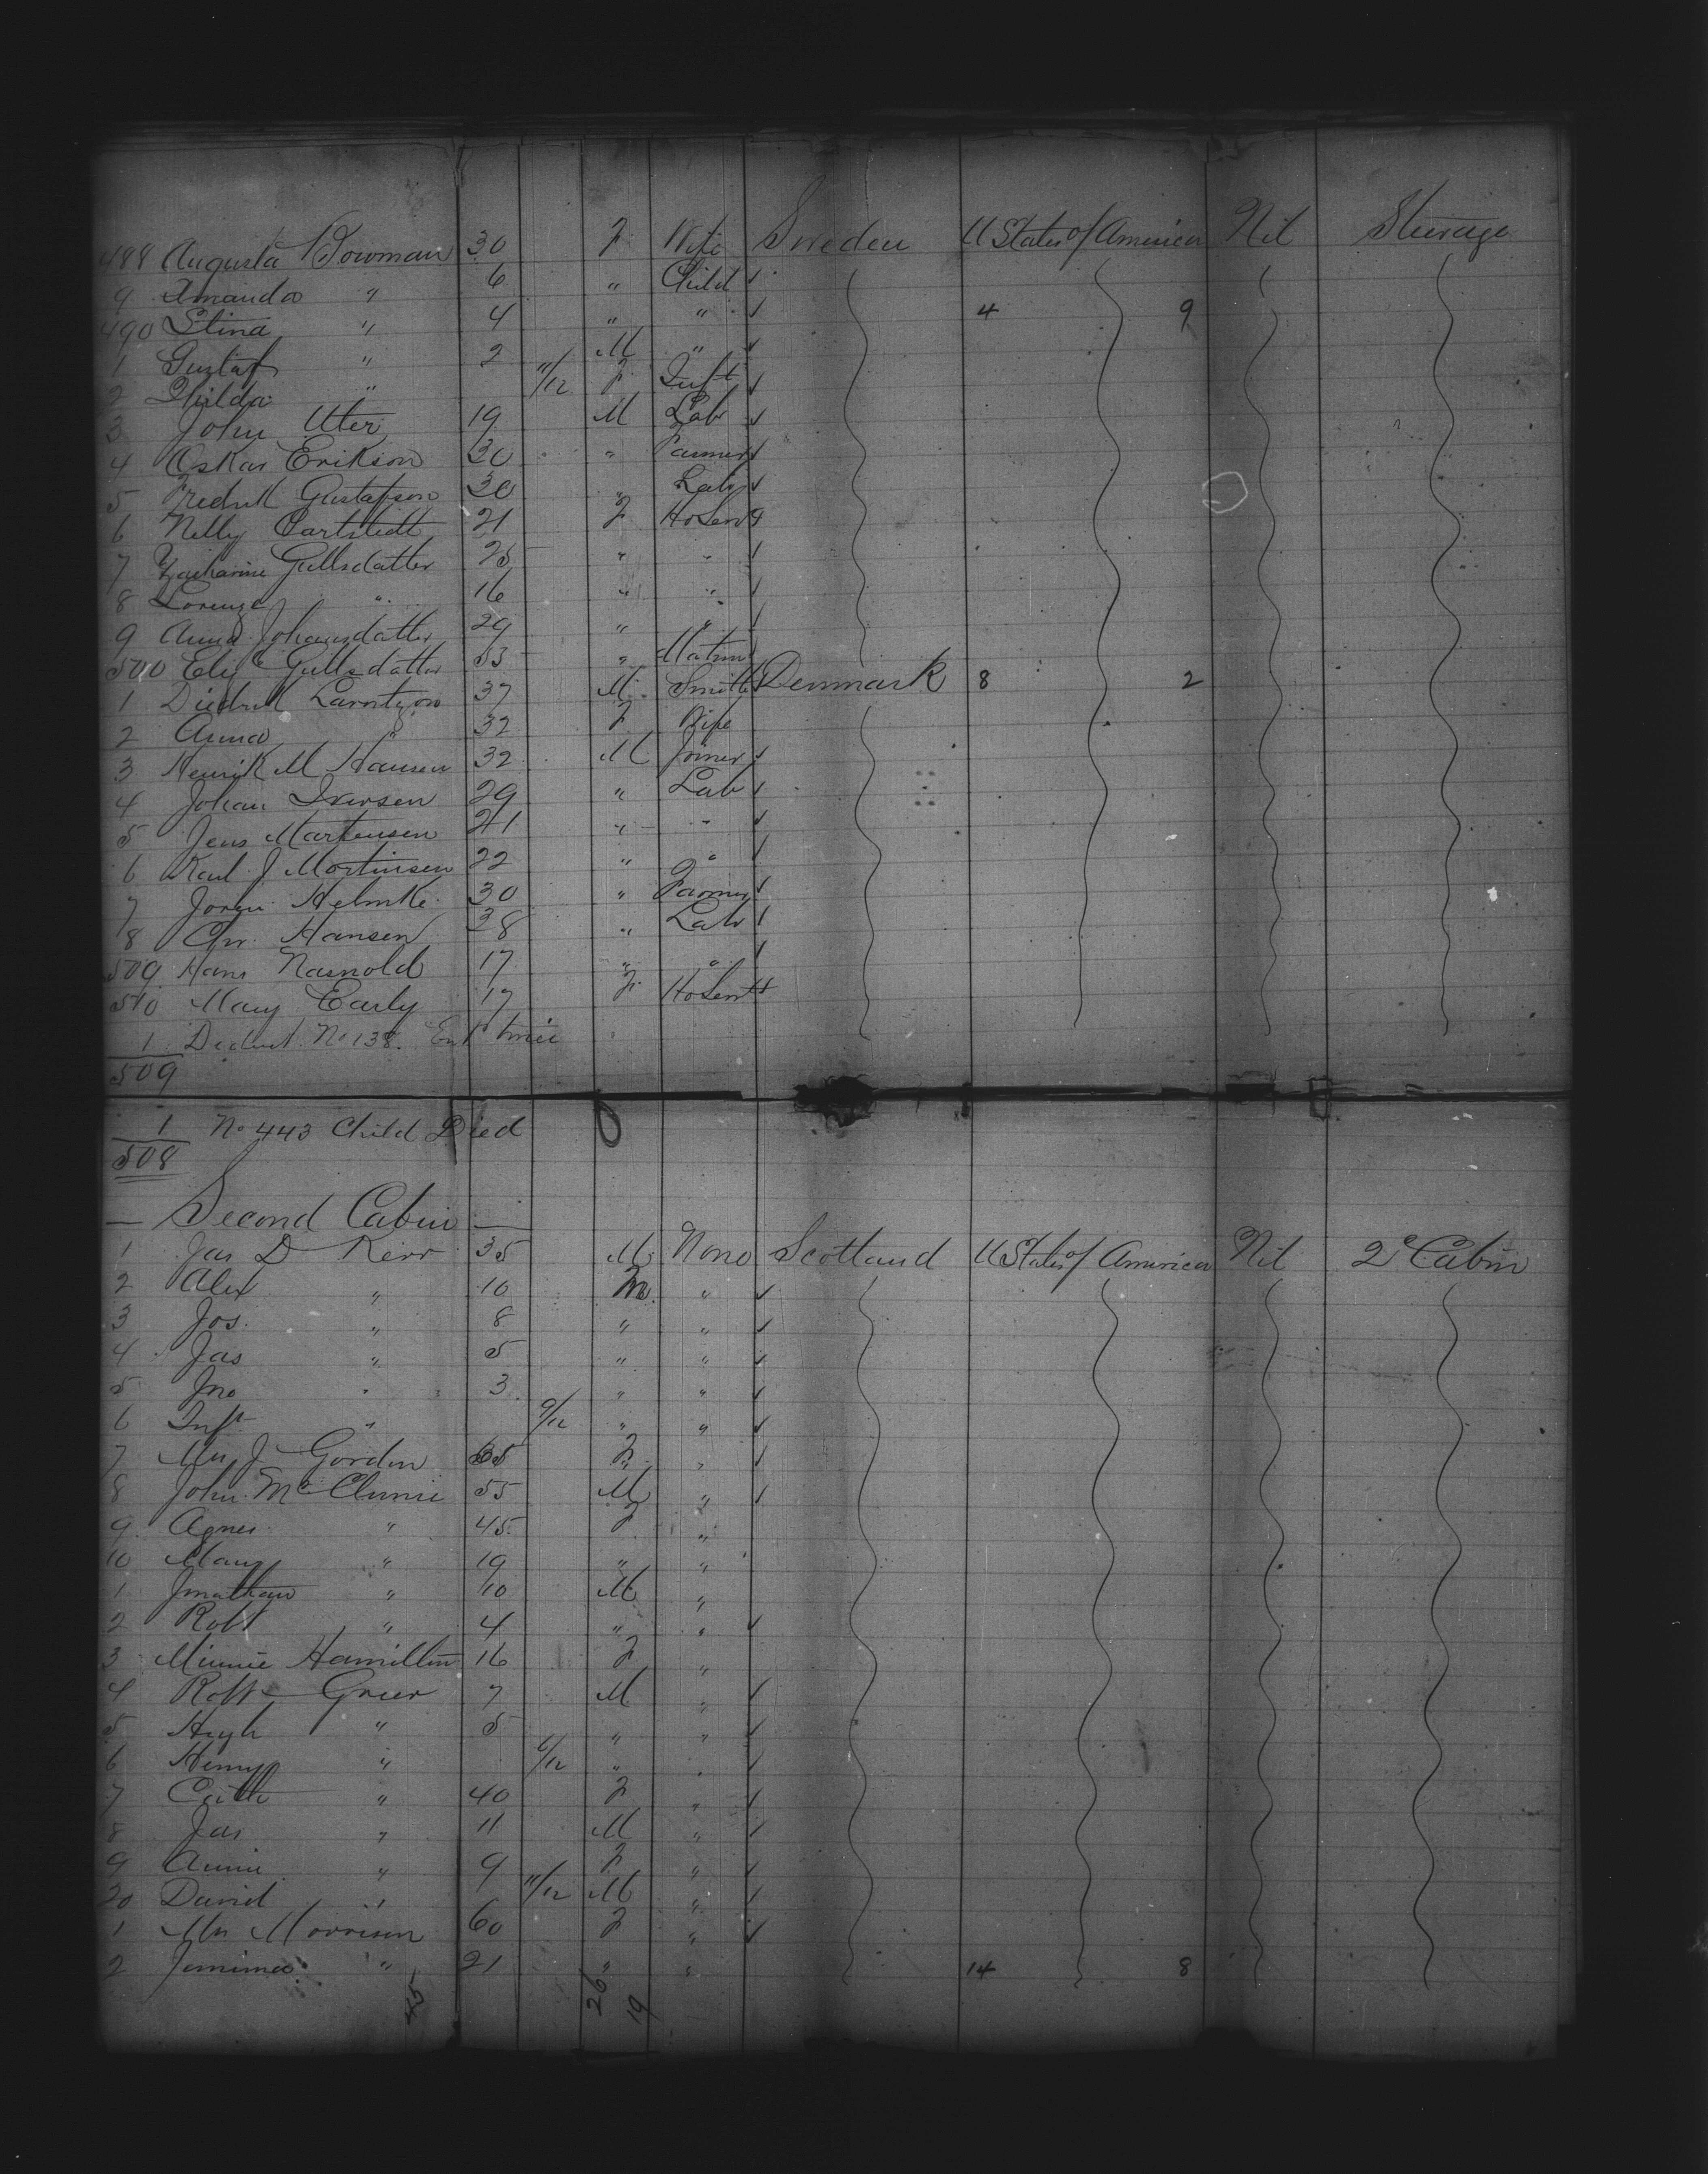 488 Augusta Bowman 30 F Wife Sweden U States of America Nil Steerage
9 Amanda " 6 " Child ✓
490 Stina " 4 " " ✓ 4 9
1 Gustaf " 2 M " ✓
2 Hilda " 11/12 F Inft ✓
3 John Uter 19 M Lab ✓
4 Oskar Erikson 30 " Farmer ✓
5 Fredrik Gustafson 30 " Lab ✓
6 Nelly Carlstedt 21 F HoServt
7 Gullsdatter 25 " "
8 16 " "
9 Anna Johansdatter 29 " "
500 Gullsdatter 33 " Matron
1 Diedrik 37 M Smith Denmark 8 2
2 Anna " 32 F Wife
3 Henrik M Hansen 32 M Joiner ✓
4 Johan Iversen 29 " Lab ✓
5 Jens Martensen 21 " " ✓
6 Karl J Mortinsen 22 " " ✓
7 Helmke 30 " Farmer ✓
8 Chr. Hansen 38 " Lab ✓
509 Hans Nasnold 17 " " ✓
510 Mary Early 17 F HoServt
1 Deduct No 138. Ent twice
509
1 No 443 Child Died
508
— Second Cabin —
1 Jas D Kerr 35 M None Scotland U States of America Nil 2e Cabin
2 Alex " 10 M " ✓
3 Jos. " 8 " " ✓
4 Jas " 5 " " ✓
5 Jno " 3 " " ✓
6 Inft " 9/12 " " ✓
7 Mrs J Gordon 65 F " ✓
8 John McClunie 55 M " ✓
9 Agnes " 45 F "
10 Mary " 19 " "
1 Jonathan " 10 M "
2 Robt " 4 " " ✓
3 Minnie Hamilton 16 F "
4 Robt Greer 7 M " ✓
5 Hugh " 5 " " ✓
6 Henry " 6/12 " " ✓
7 Cath " 40 F " ✓
8 Jas " 11 M " ✓
9 Annie " 9 F " ✓
20 David " 11/12 M " ✓
1 Mrs Morrison 60 F " ✓
2 Jemima " 21 " " 14 8
45 26 19